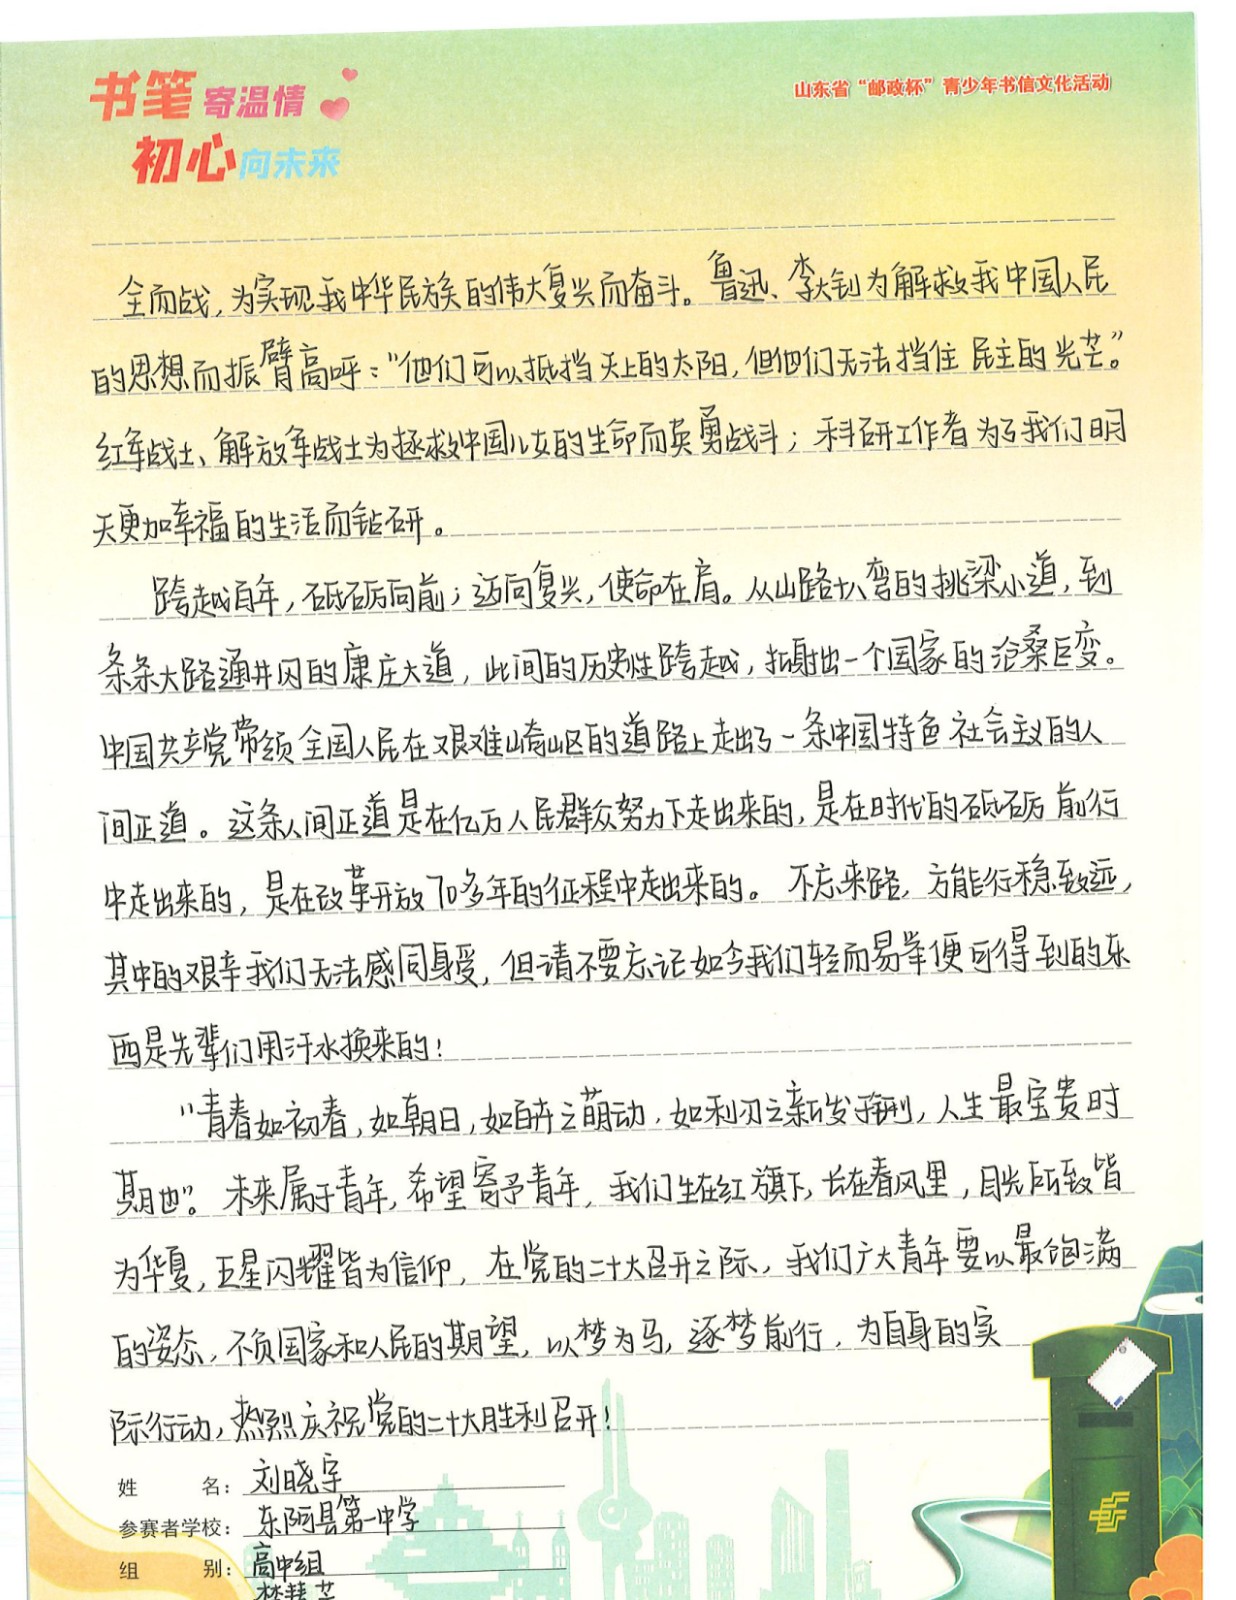 书笔寄温情
初心向未来
山东省“邮政杯”青少年书信文化活动
全而战，为实现我中华民族的伟大复兴而奋斗。鲁迅、李大钊为解救我中国人民
的思想而振臂高呼：“他们可以抵挡天上的太阳，但他们无法挡住民主的光芒”。
红军战士、解放军战士为拯救中国儿女的生命而英勇战斗；科研工作者为了我们明
天更加幸福的生活而钻研。
跨越百年，砥砺向前；迈向复兴，使命在肩。从山路十八弯的挑梁小道，到
条条大路通井冈的康庄大道，此间的历史性跨越，折射出一个国家的沧桑巨变。
中国共产党带领全国人民在艰难崎岖的道路上走出了一条中国特色社会主义的人
间正道。这条人间正道是在亿万人民群众努力下走出来的，是在时代的砥砺前行
中走出来的，是在改革开放70多年的征程中走出来的。不忘来路，方能行稳致远，
其中的艰辛我们无法感同身受，但请不要忘记如今我们轻而易举便可得到的东
西是先辈们用汗水换来的！
“青春如初春，如朝日，如百卉之萌动，如利刃之新发于硎，人生最宝贵时
期也”。未来属于青年，希望寄予青年，我们生在红旗下，长在春风里，目光所致皆
为华夏，五星闪耀皆为信仰，在党的二十大召开之际，我们广大青年要以最饱满
的姿态，不负国家和人民的期望，以梦为马，逐梦前行，为自身的实
际行动，热烈庆祝党的二十大胜利召开！
姓名：刘晓宇
参赛者学校：东阿县第一中学
组别：高中组